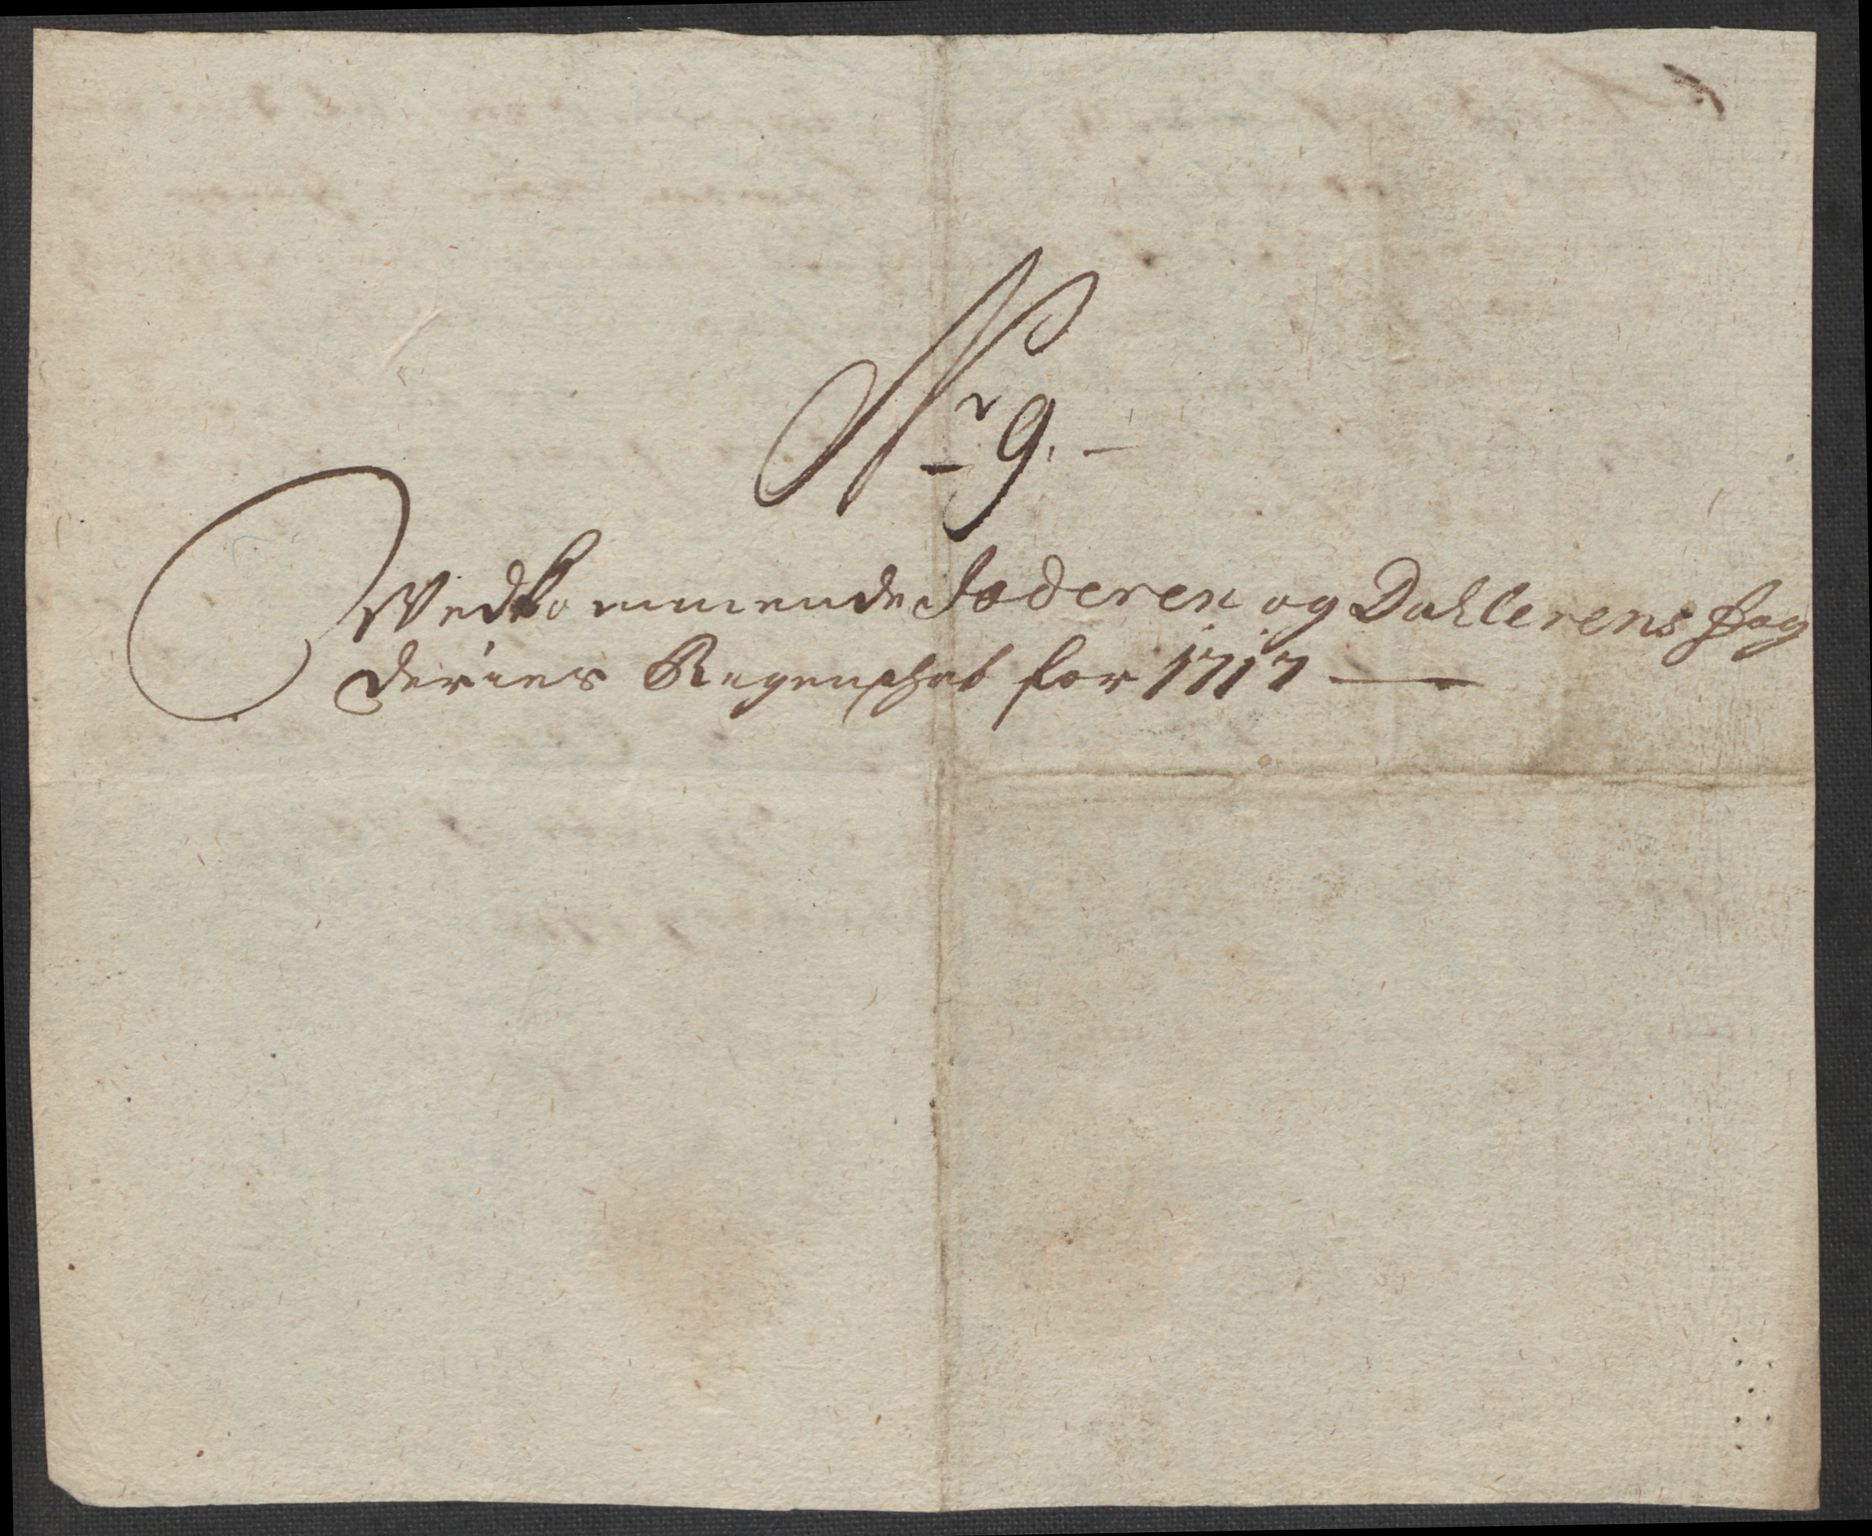 Nr 9.
Wedkommende Jæderen og Dahlerens fog
deries Regenschab for 1717